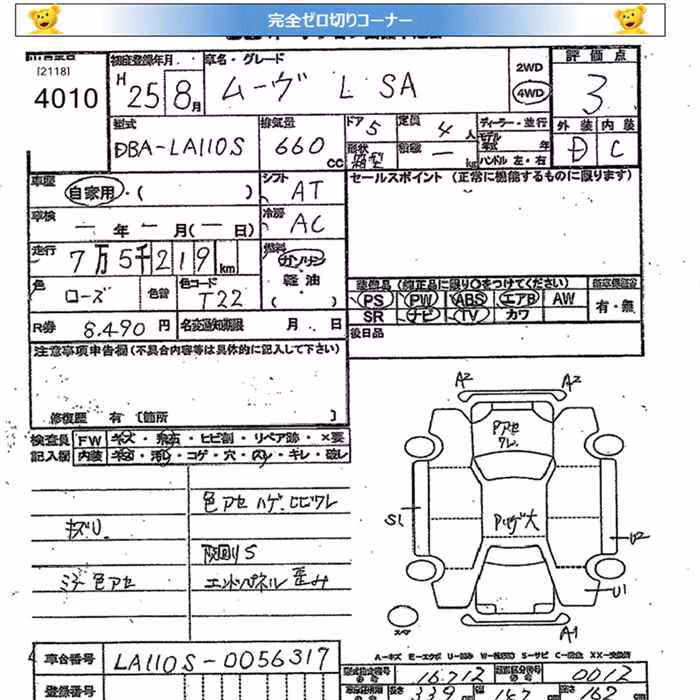 完全ゼロ切りコーナー
[2118]
4010
初度登録年月
H 25 8月
車名・グレード
ムーヴ L SA
2WD
4WD
評価点
3
外装 内装
D C
型式
DBA-LA110S
排気量
660 cc
ドア 5
定員 4 人
形状 箱型
積載 — kg
ディーラー・並行
モデル年式 年
ハンドル 左・右
車歴
自家用・( )
シフト
AT
セールスポイント (正常に機能するものに限ります)
車検
— 年 — 月(— 日)
冷房
AC
走行
7万5千219km
燃料
ガソリン
軽油
( )
色
ローズ
色替
色コード
T22
装備品 (純正品に限り○をつけてください)
PS PW ABS エアB AW
SR ナビ TV カワ
有・無
R券 8,490円
名変通知期限 月 日
後日品
注意事項申告欄 (不具合内容等は具体的に記入して下さい)
修復歴 有 [箇所 ]
検査員 FW キズ・飛石・ヒビ割・リペア跡・×要
記入欄 内装 キズ・汚れ・コゲ・穴・スレ・キレ・破レ
色アセ ハゲ、ヒビワレ
キズU.
下回りS
ミラー色アセ
エンドパネル歪み
A2 A2
Pアセ
ワレ
S1
Pハゲ大
U2
U1
A1
スペア
A-キズ E-エクボ U-凹み W-波凹凸 S-サビ C-腐食 XX-交換済
車台番号 LA110S-0056317
登録番号
型式指定番号 16712
類別区分番号 0012
長さ 339